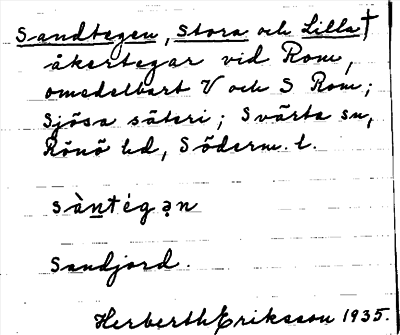 Sandtegen, Stora och Lilla†
åkertegar vid Rom,
omedelbart V och S Rom;
Sjösa säteri; Svärta sn,
Rönö hd, Söderm. l.
sàntégən
Sandjord.
Herberth Eriksson 1935.